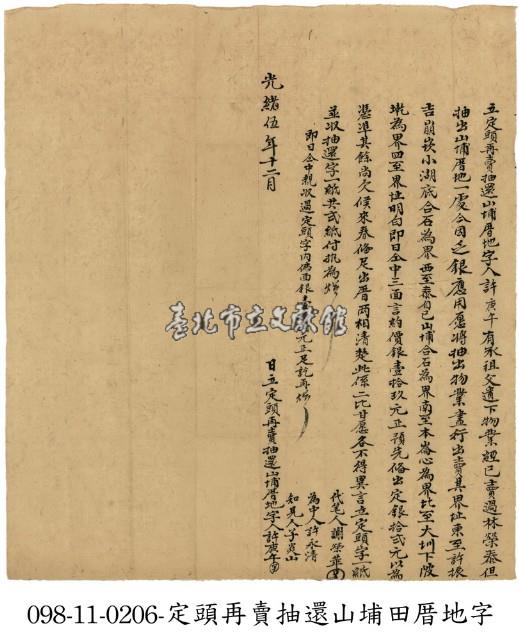 立定頭再賣抽還山埔厝地字人許庚午有承祖父遺下物業經已賣過林榮泰但
抽出山埔厝地一處今因乏銀應用愿將抽出物業盡行出賣其界址東至許振
吉崩崁小湖底合石為界西至泰自己山埔合石為界南至本崙心為界北至大圳下陂
墘為界四至界址明白即日仝中三面言約價銀壹拾玖元正預先備出定銀拾弍元以為
憑準其餘尚欠候來春備足出厝兩相清楚此係二比甘愿各不得異言立定頭字一紙
並收抽還字一紙共弍紙付執為炤
即日仝中親收過定頭字內佛面銀壹元正足訖再炤
代笔人謝榮華
為中人許永清
知見人子
光緒伍年十二月
日立定頭再賣抽還山埔厝地字人許庚午
臺北市立文獻館
098-11-0206-定頭再賣抽還山埔田厝地字